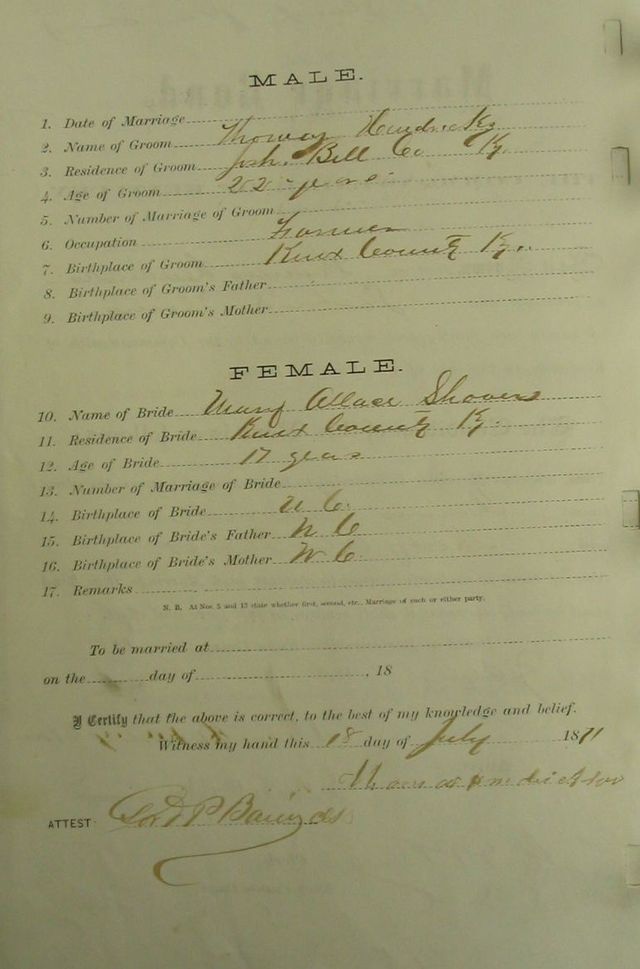 MALE.
1. Date of Marriage
2. Name of Groom Thomas Hendricks
3. Residence of Groom Josh. Bell Co Ky.
4. Age of Groom 22 years
5. Number of Marriage of Groom
6. Occupation Farmer
7. Birthplace of Groom Knox County Ky.
8. Birthplace of Groom's Father
9. Birthplace of Groom's Mother
FEMALE.
10. Name of Bride Mary
11. Residence of Bride Knox County Ky.
12. Age of Bride 17 years
13. Number of Marriage of Bride
14. Birthplace of Bride N C.
15. Birthplace of Bride's Father N C
16. Birthplace of Bride's Mother N C.
17. Remarks
N. B. At Nos. 5 and 13 state whether first, second, etc., Marriage of each or either party.
To be married at
on the day of , 18
I Certify that the above is correct, to the best of my knowledge and belief.
Witness my hand this 18 day of July 1871
ATTEST